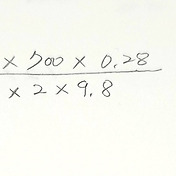 × 700 × 0.28
× 2 × 9.8